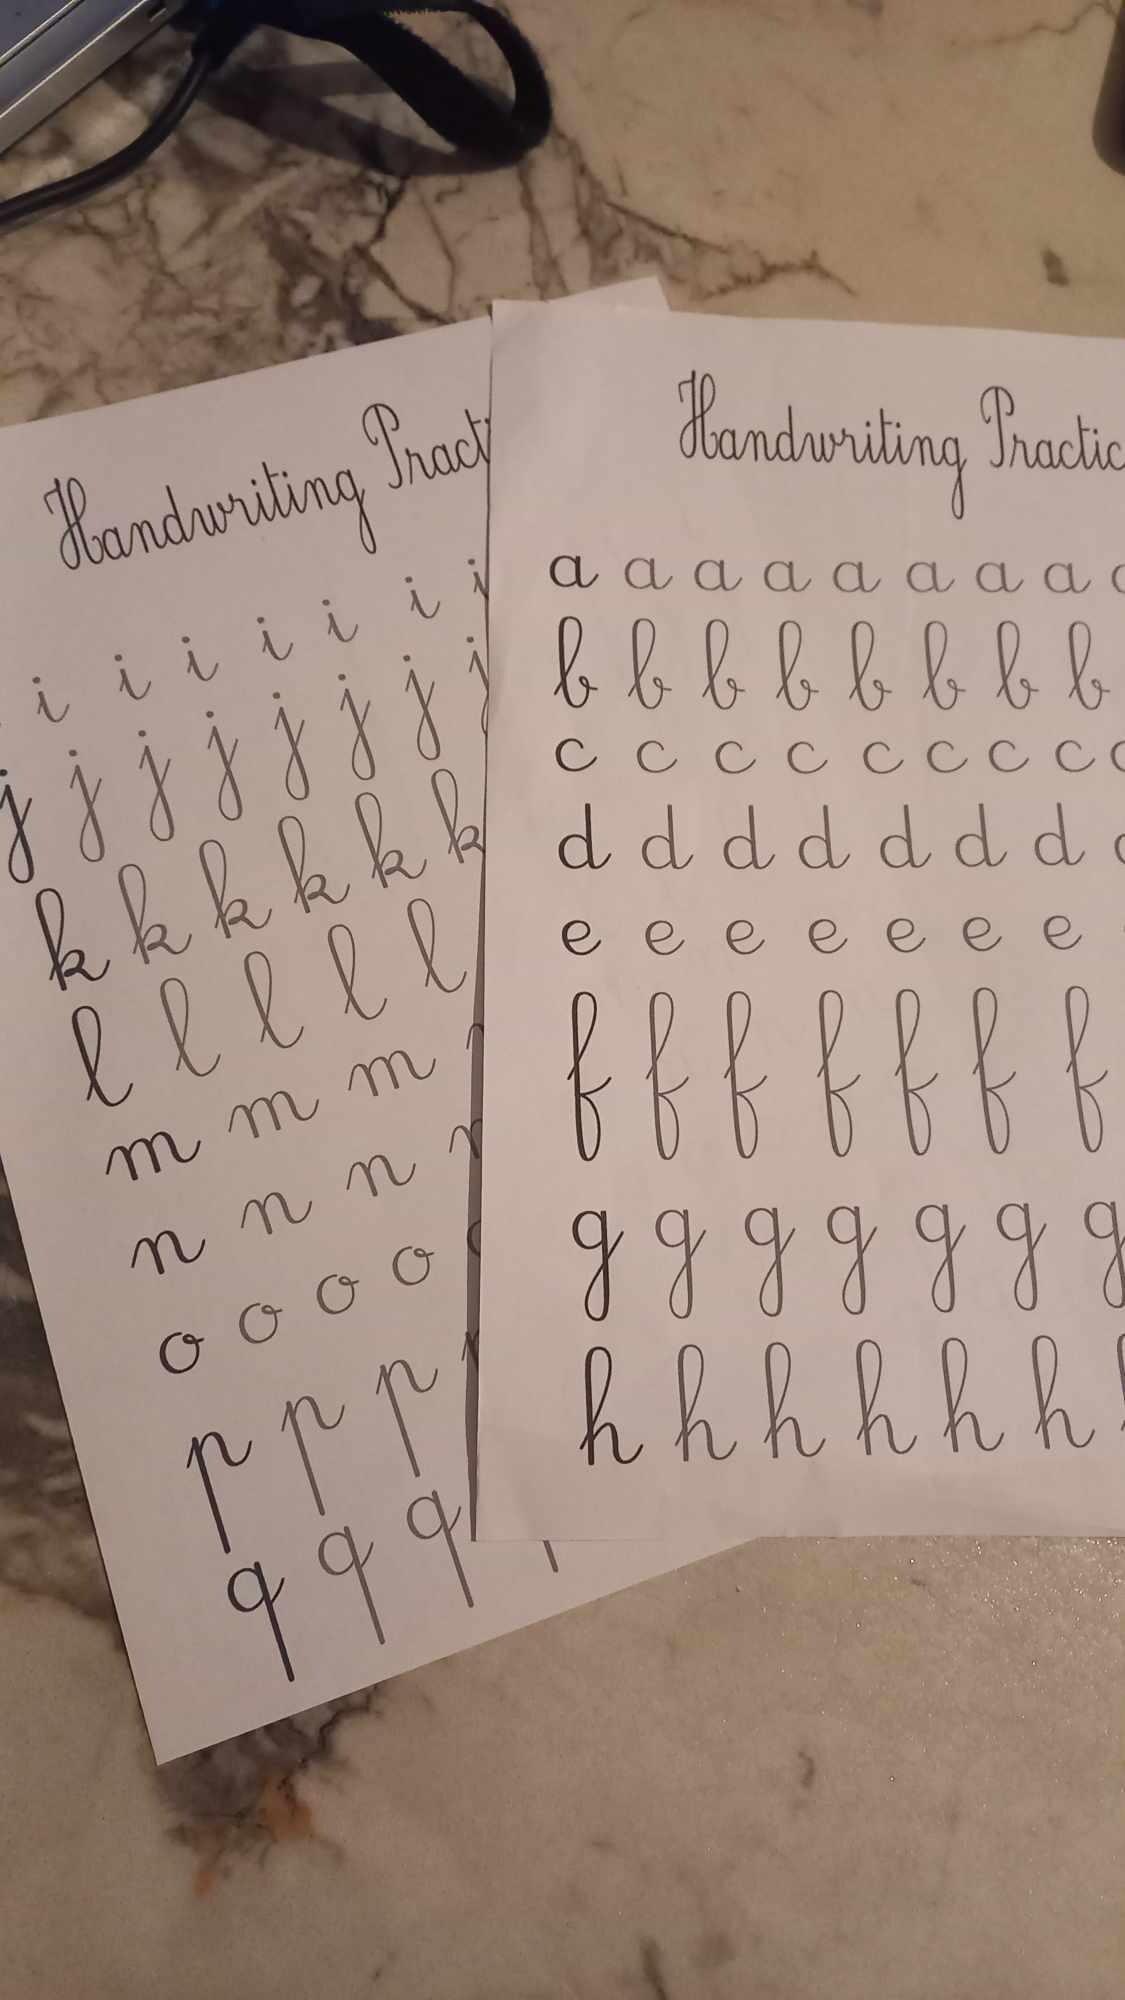 Handwriting Practi
i i i i i i i
j j j j j j j
k k k k k k
l l l l l
m m m
n n n
o o o o
p p p
q q q
Handwriting Practic
a a a a a a a a
b b b b b b b b
c c c c c c c c
d d d d d d d
e e e e e e e
f f f f f f f
g g g g g g g
h h h h h h